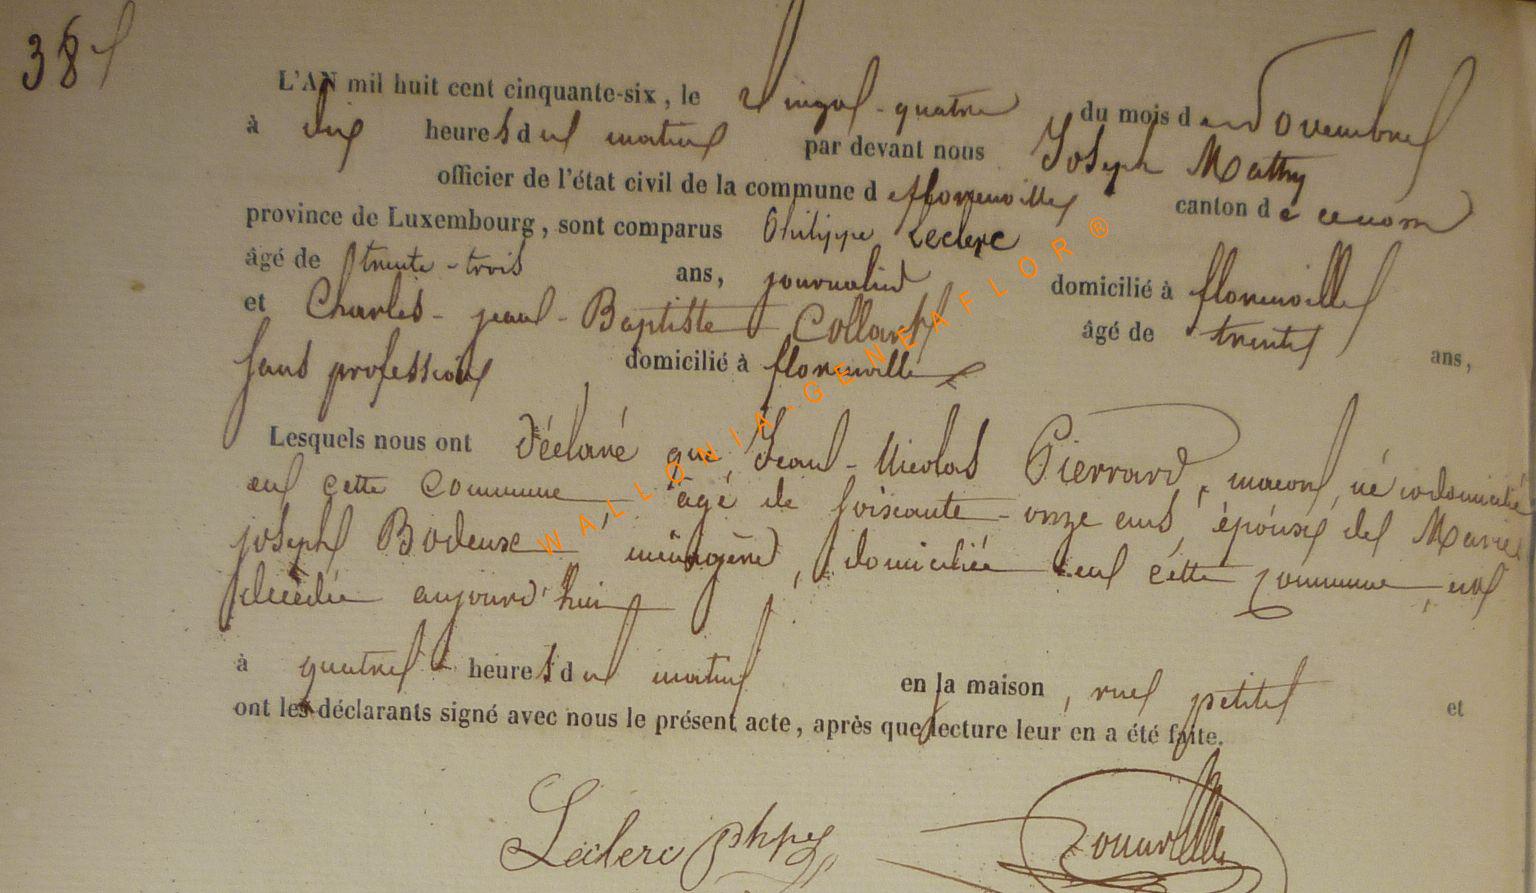 38
L'AN mil huit cent cinquante-six, le Vingt-quatre du mois de Novembre
à dix heures du matin par devant nous Joseph Mathy
officier de l'état civil de la commune de florenville canton de
province de Luxembourg, sont comparus Philippe Leclerc
âgé de trente-trois ans, journalier domicilié à florenville
et Charles-jean-Baptiste Collard âgé de trente ans,
sans profession domicilié à florenville
Lesquels nous ont déclaré que Jean-Nicolas Pierrard, maçon, né et domicilié
en cette commune, âgé de soixante-onze ans, époux de Marie
joseph Bodeuse ménagère, domiciliée en cette commune, est
décédé aujourd'hui
à quatre heures du matin en sa maison, rue petite et
ont les déclarants signé avec nous le présent acte, après que lecture leur en a été faite.
Leclerc phpe
WALLONIA-GENEAFLOR®